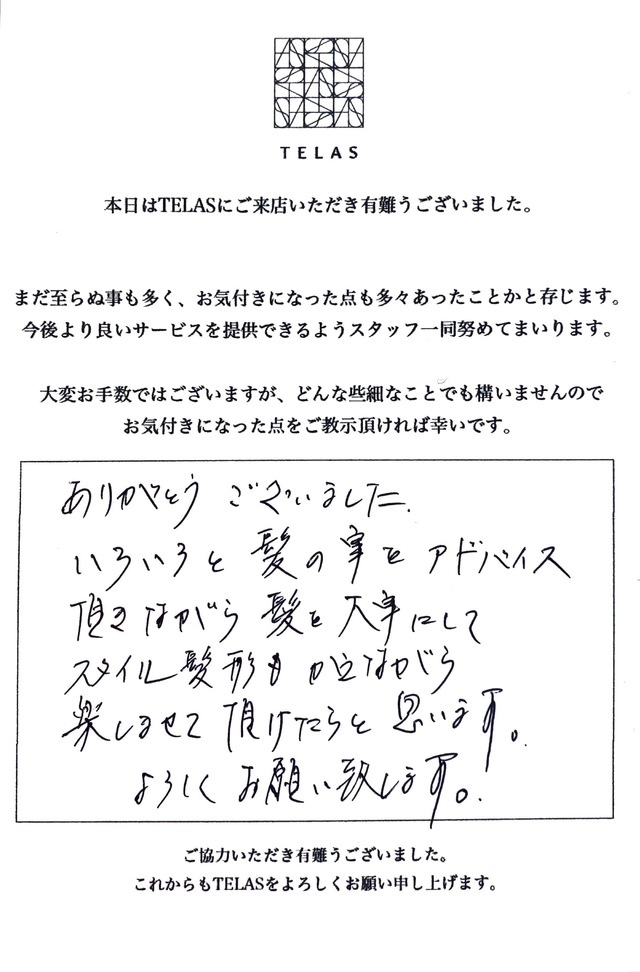 TELAS
本日はTELASにご来店いただき有難うございました。
まだ至らぬ事も多く、お気付きになった点も多々あったことかと存じます。
今後より良いサービスを提供できるようスタッフ一同努めてまいります。
大変お手数ではございますが、どんな些細なことでも構いませんので
お気付きになった点をご教示頂ければ幸いです。
ありがとう ございました.
いろいろと 髪の事を アドバイス
頂きながら 髪を大事にして
スタイル 髪形も ながら
楽しませて 頂けたらと 思います。
よろしく お願い致します。
ご協力いただき有難うございました。
これからもTELASをよろしくお願い申し上げます。